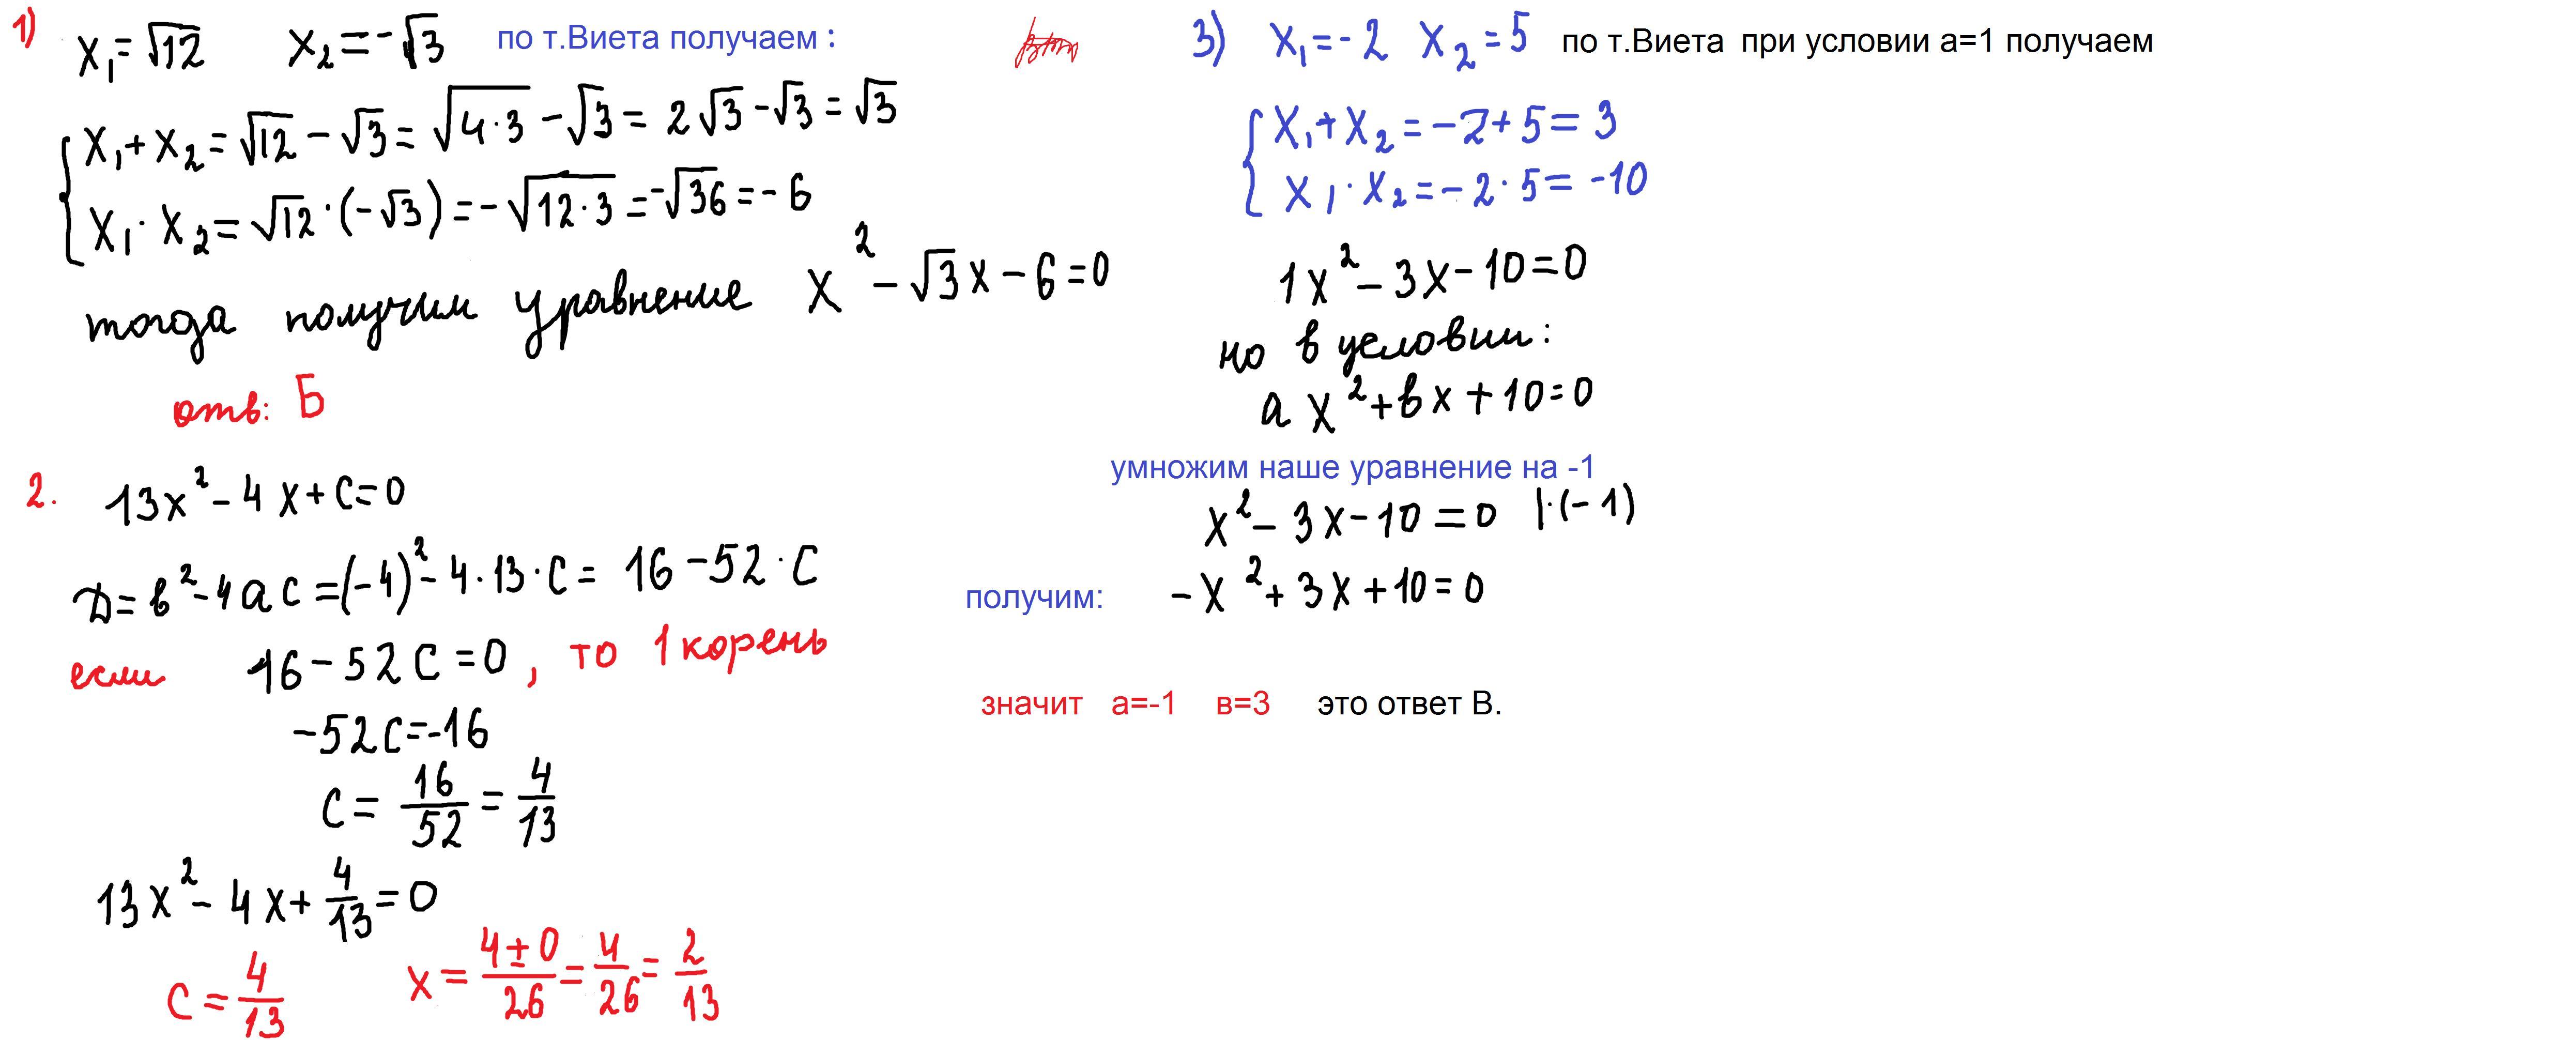 1) x₁=√12 x₂=-√3 по т.Виета получаем :
x₁+x₂=√12-√3=√4·3-√3=2√3-√3=√3
x₁·x₂=√12·(-√3)=-√12·3=-√36=-6
тогда получим уравнение x²-√3x-6=0
отв: Б
2. 13x²-4x+c=0
D=в²-4ac=(-4)²-4·13·c=16-52·c
если 16-52c=0, то 1 корень
-52c=-16
c=16/52=4/13
13x²-4x+4/13=0
c=4/13 x=4±0/26=4/26=2/13
3) x₁=-2 x₂=5 по т.Виета при условии а=1 получаем
x₁+x₂=-2+5=3
x₁·x₂=-2·5=-10
1x²-3x-10=0
но в условии:
a x²+вx+10=0
умножим наше уравнение на -1
x²-3x-10=0 |·(-1)
получим: -x²+3x+10=0
значит а=-1 в=3 это ответ В.